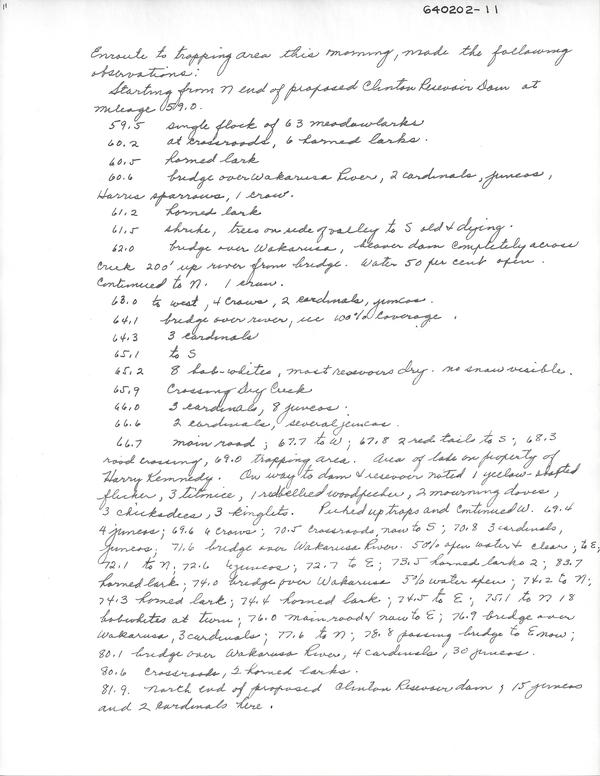 11
640202-11
Enroute to trapping area this morning, made the following
observations:
Starting from N end of proposed Clinton Resevoir Dam at
mileage 59.0.
59.5 single flock of 63 meadowlarks
60.2 at crossroads, 6 horned larks.
60.5 horned lark
60.6 bridge over Wakarusa River, 2 cardinals, juncos,
Harris sparrows, 1 crow.
61.2 horned lark
61.5 shrike, trees on side of valley to S old & dying.
62.0 bridge over Wakarusa, beaver dam completely across
creek 200' up river from bridge. Water 50 per cent open.
Continued to N. 1 crow.
63.0 to west, 4 crows, 2 cardinals, juncos.
64.1 bridge over river, ice 100% coverage.
64.3 3 cardinals
65.1 to S
65.2 8 bob-whites, most resevoirs dry. no snow visible.
65.9 Crossing Dry Creek
66.0 3 cardinals, 8 juncos.
66.6 2 cardinals, several juncos.
66.7 main road; 67.7 to W; 67.8 2 red tails to S; 68.3
road crossing, 69.0 trapping area. Area of lake on property of
Harry Kennedy. On way to dam & resevoir noted 1 yellow-shafted
flicker, 3 titmice, 1 redbellied woodpecker, 2 mourning doves,
3 chickadees, 3 kinglets. Picked up traps and continued W. 69.4
4 juncos; 69.6 6 crows; 70.5 crossroads, now to S; 70.8 3 cardinals,
juncos; 71.6 bridge over Wakarusa River. 50% open water & clear; to E;
72.1 to N; 72.6 4 juncos; 72.7 to E; 73.5 horned larks 2; 83.7
horned lark; 74.0 bridge over Wakarusa 5% water open; 74.2 to N;
74.3 horned lark; 74.4 horned lark; 74.5 to E; 75.1 to N 18
bobwhites at turn; 76.0 main road & now to E; 76.9 bridge over
Wakarusa, 3 cardinals; 77.6 to N; 78.8 passing bridge to E now;
80.1 bridge over Wakarusa River, 4 cardinals, 30 juncos.
80.6 crossroads, 2 horned larks.
81.9. North end of proposed Clinton Resevoir dam; 15 juncos
and 2 cardinals here.